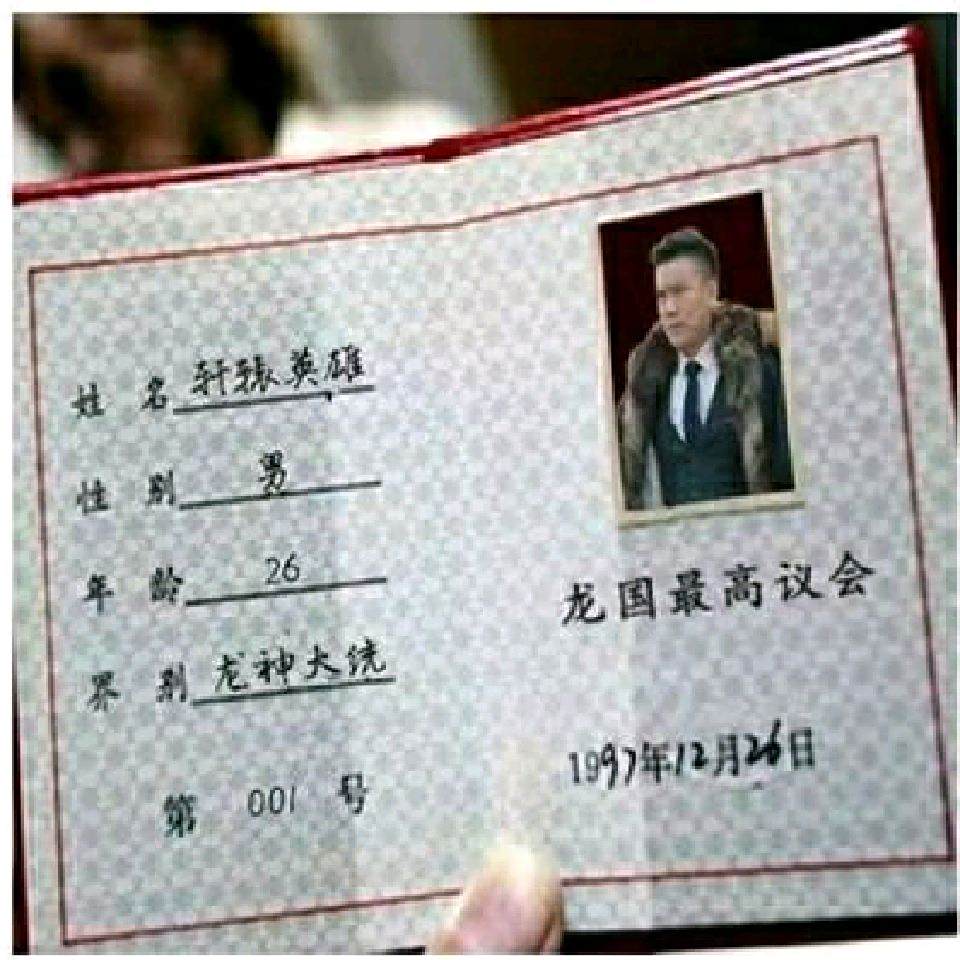 姓 名 轩辕英雄
性 别 男
年 龄 26
界 别 龙神大统
第 001 号
龙国最高议会
1997年12月26日